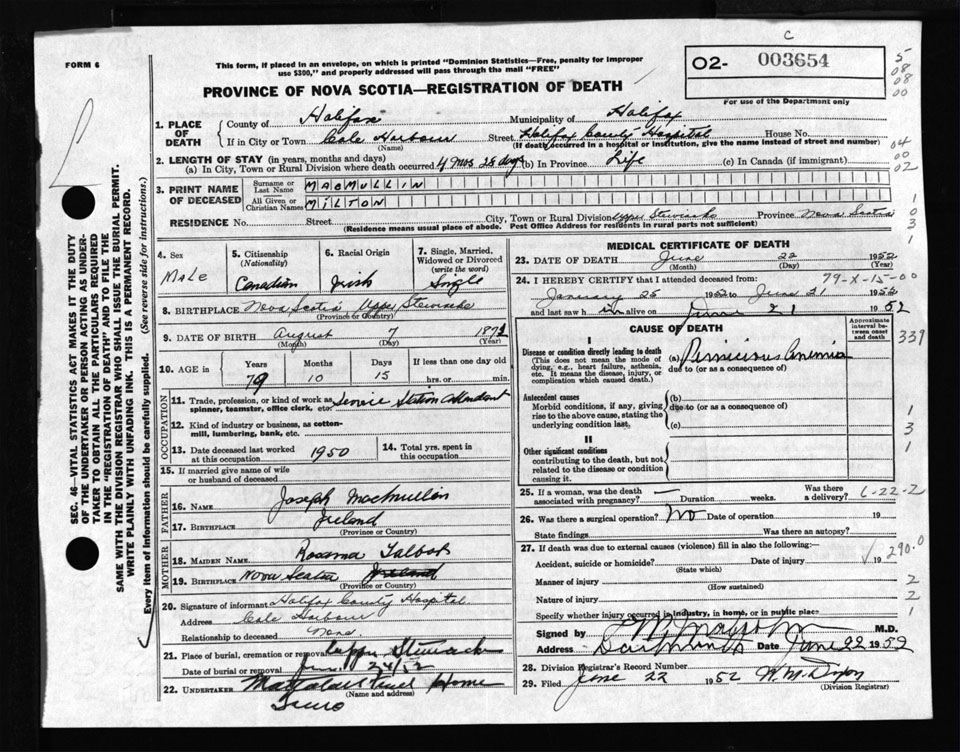 C
FORM 6
This form, if placed in an envelope, on which is printed "Dominion Statistics—Free, penalty for improper
use $300," and properly addressed will pass through the mail "FREE"
O2- 003654
For use of the Department only
5
08
08
00
PROVINCE OF NOVA SCOTIA—REGISTRATION OF DEATH
1. PLACE OF DEATH
County of Halifax Municipality of Halifax
If in City or Town Cole Harbour Street Halifax County Hospital House No.
(Name) (If death occurred in a hospital or institution, give the name instead of street and number)
04
00
02
2. LENGTH OF STAY (in years, months and days)
(a) In City, Town or Rural Division where death occurred 4 mos 28 days (b) In Province Life (c) In Canada (if immigrant)
3. PRINT NAME OF DECEASED
Surname or Last Name MACMULLIN
All Given or Christian Names MILTON
1
0
3
RESIDENCE No. Street City, Town or Rural Division Upper Stewiacke Province Nova Scotia
(Residence means usual place of abode. Post Office Address for residents in rural parts not sufficient)
4. Sex
Male
5. Citizenship
(Nationality)
Canadian
6. Racial Origin
Irish
7. Single, Married,
Widowed or Divorced
(write the word)
Single
8. BIRTHPLACE Nova Scotia Upper Stewiacke
(Province or Country)
9. DATE OF BIRTH August 7 1872
(Month) (Day) (Year)
10. AGE in
Years Months Days If less than one day old
79 10 15 hrs. or min.
OCCUPATION
11. Trade, profession, or kind of work as
spinner, teamster, office clerk, etc. Service Station Attendant
12. Kind of industry or business, as cotton-
mill, lumbering, bank, etc.
13. Date deceased last worked
at this occupation 1950
14. Total yrs. spent in
this occupation
15. If married give name of wife
or husband of deceased
FATHER
16. Name Joseph MacMullin
17. Birthplace Ireland
(Province or Country)
MOTHER
18. MAIDEN NAME Rosanna Talbot
19. BIRTHPLACE Nova Scotia Ireland
(Province or Country)
20. Signature of informant Halifax County Hospital
Address Cole Harbour
Relationship to deceased None
21. Place of burial, cremation or removal Upper Stewiacke
Date of burial or removal June 24/52
22. UNDERTAKER Home
(Name and address)
Truro
MEDICAL CERTIFICATE OF DEATH
23. DATE OF DEATH June 22 1952
(Month) (Day) (Year)
24. I HEREBY CERTIFY that I attended deceased from: 79-X-15-00
January 25 1952 to June 21 1952
and last saw him alive on June 21 1952
CAUSE OF DEATH
Approximate interval between onset and death
339
I
Disease or condition directly leading to death
(This does not mean the mode of
dying, e.g., heart failure, asthenia,
etc. It means the disease, injury, or
complication which caused death.)
(a) Pernicious Anemia
due to (or as a consequence of)
Antecedent causes
Morbid conditions, if any, giving
rise to the above cause, stating the
underlying condition last.
(b)
due to (or as a consequence of)
(c)
1
3
1
II
Other significant conditions
contributing to the death, but not
related to the disease or condition
causing it.
25. If a woman, was the death
associated with pregnancy? — Duration weeks. Was there a delivery? 6-22-2
26. Was there a surgical operation? No Date of operation 19
State findings Was there an autopsy?
27. If death was due to external causes (violence) fill in also the following:—
Accident, suicide or homicide? Date of injury 19 290.0
(State which)
Manner of injury 2
(How sustained)
Nature of injury 2
Specify whether injury occurred in industry, in home, or in public place 1
Signed by M.D.
Address Dartmouth Date June 22 1952
28. Division Registrar's Record Number
29. Filed June 22 1952 W.M. Dixon
(Division Registrar)
SEC. 46—VITAL STATISTICS ACT MAKES IT THE DUTY
OF THE UNDERTAKER OR PERSON ACTING AS UNDER-
TAKER TO OBTAIN ALL THE PARTICULARS REQUIRED
IN THE "REGISTRATION OF DEATH" AND TO FILE THE
SAME WITH THE DIVISION REGISTRAR WHO SHALL ISSUE THE BURIAL PERMIT.
WRITE PLAINLY WITH UNFADING INK. THIS IS A PERMANENT RECORD.
Every item of information should be carefully supplied. (See reverse side for instructions.)